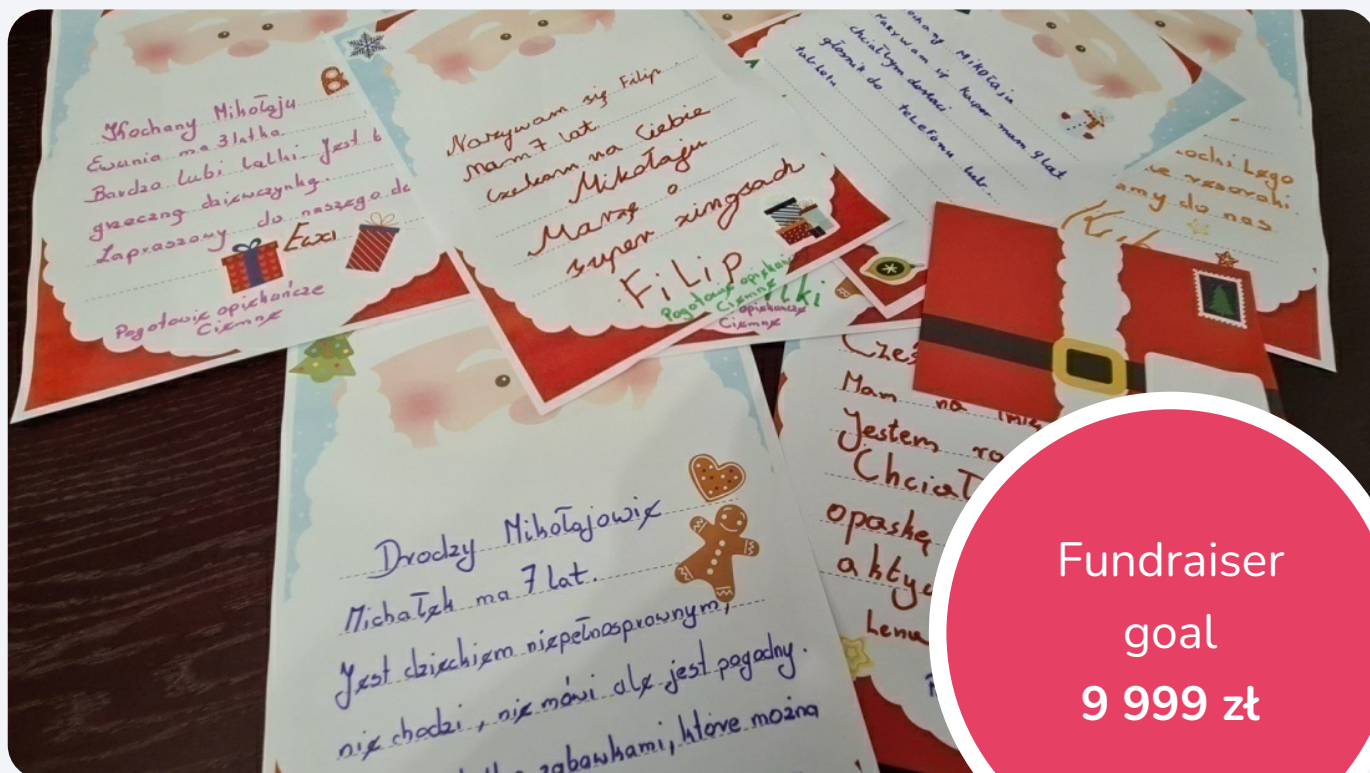 Kochany Mikołaju
Ewunia ma 3 latka
Bardzo lubi lalki Jest
grzeczną dziewczynką.
Zapraszamy do naszego
Pogotowie opiekuńcze
Ciemne
Nazywam się Filip.
mam 7 lat.
Czekam na Ciebie
Mikołaju
Marzę o
super zingsach
FiLip
Pogotowie
Ciemne
opiekuńcze
Ciemne
Mikołaju
Nazywam się Kacper mam 9 lat
chciałbym dostać
głośnik do telefonu lub
tabletu
Lego
resoraki.
do nas
Drodzy Mikołajowie
Michałek ma 7 lat.
Jest dzieckiem niepełnosprawnym,
nie chodzi, nie mówi ale jest pogodny.
zabawkami, które można
Mam na
Jestem
opaskę
Fundraiser
goal
9 999 zł